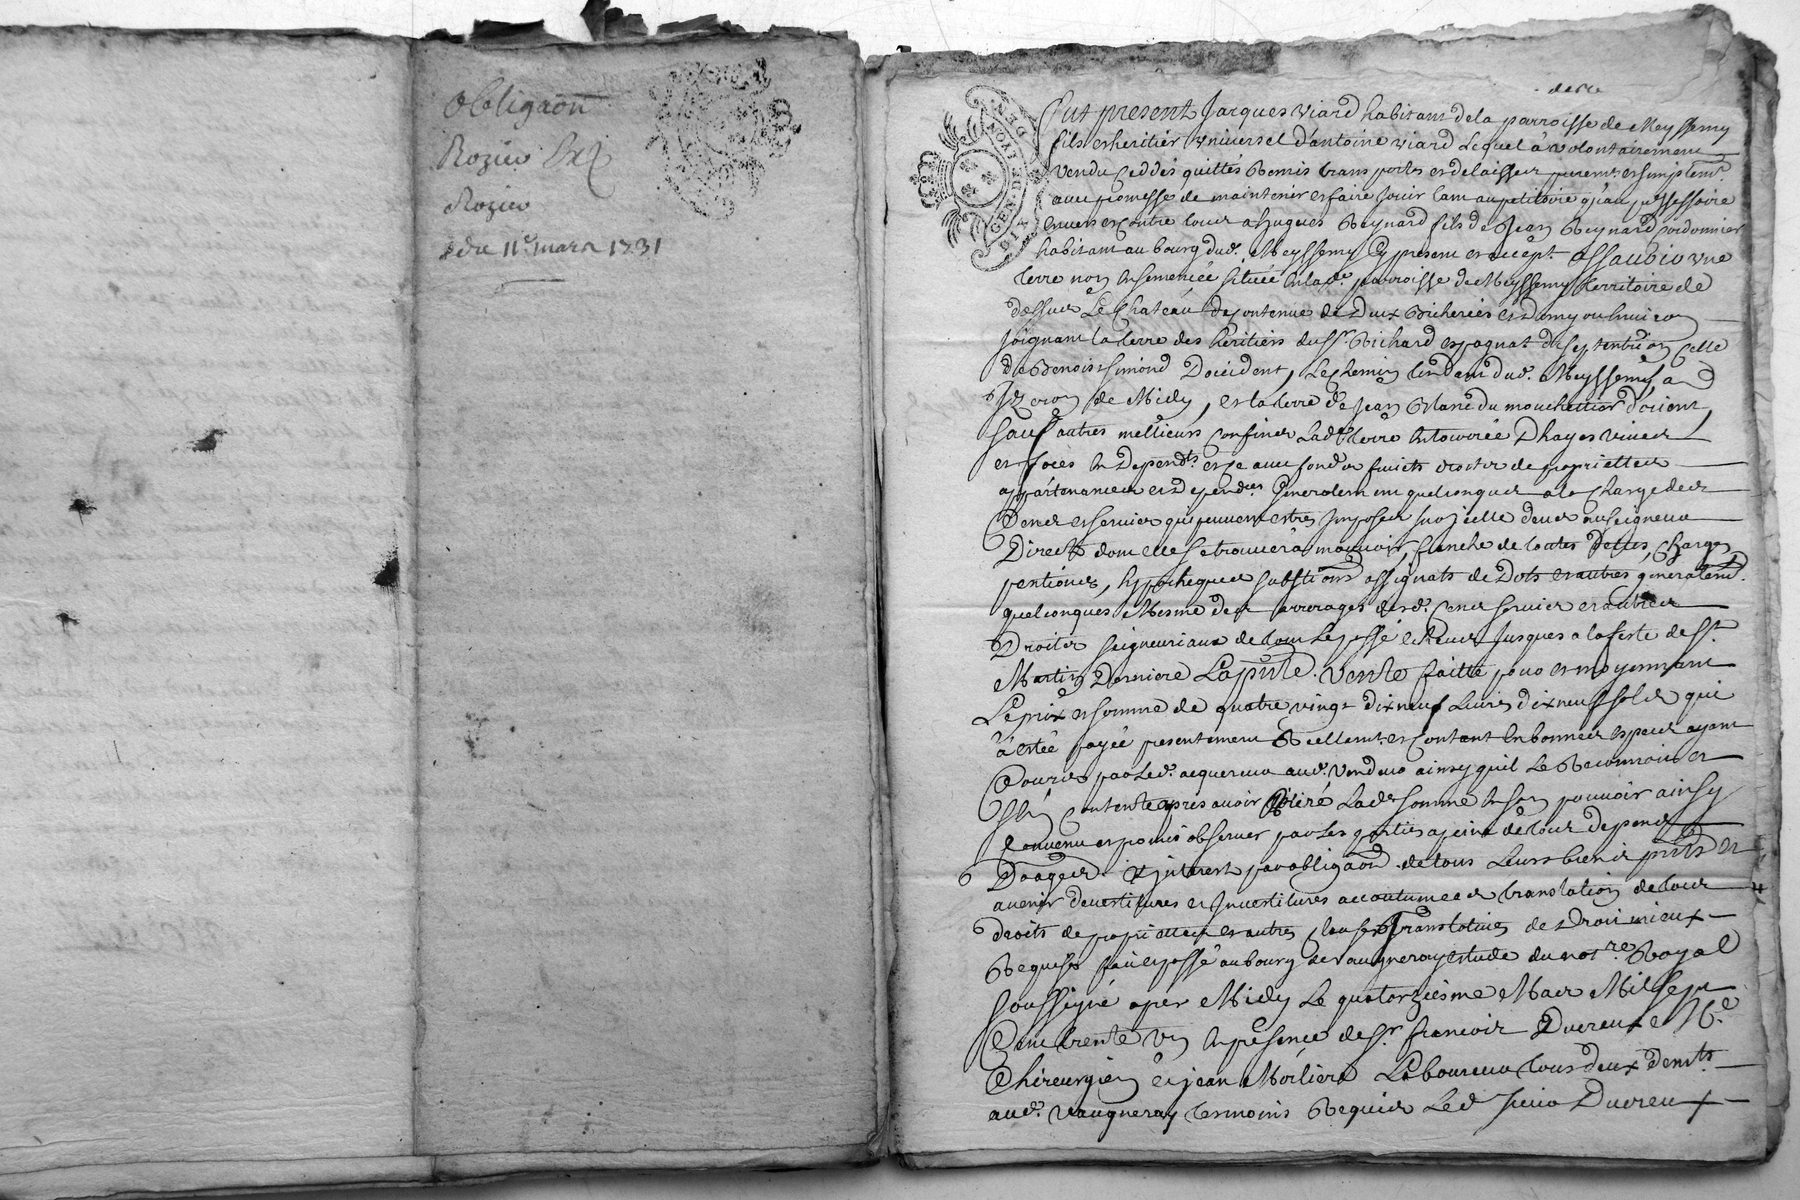 Obligaon
Rozier
Rozier
du 11e mars 1731
GEN. DE LYON
Fut present Jacques Viard habitant de la parroisse de Meyssemy
fils et heritier universel d'antoine viard Lequel à volontairement
vendu ceddés quittés Remis transportes et delaisser purem.t et simplem.t
avec promesse de maintenir et faire jouir tant au petitoire qu'au possessoire
envers et contre tous a hugues Reynard fils de Jean Reynard Cordonnier
habitant au bourg dud. Meyssemy Cy present et accept. assavoir une
terre non ensemencée située en lade. parroisse de Meyssemy territoire de
dessus Le Chateau de contenue de deux Bicherées et demy ou environ
joignant la terre des heritiers du Sr. Richard espagnat de septentrion Celle
de Benoist simond Doccident, Le chemin tendant dud. Meyssemy a
Izeron de Midy, et la terre de Jean du mouchettior d'orient,
sauf autres meilleurs confines Ladte terre entourée d'hayes vives
et fossés en Dependts. et ce avec fond et fruicts droits de proprietté
appartenances et dependces Generalement quelconques a la Charge des
Cens et servis qui peuvent estres Imposés sur jcelle deus au seigneur
Direct dont elle se trouvera mouvoir, franche de toutes dettes, charges
pentions, hyppotheques substions assignats de Dots et autres generalemt.
quelconques Mesme des arrerages desd. Cens servis et autres
Droits seigneuriaux de tout Le passé echeus Jusques a la feste de St.
Martin Derniere La pnte. Vente faitte pour et moyennant
Le prix et somme de quatre vingt dix neuf Livres dix neuf sols qui
à estée payée presentement Reellemt. et Contant en bonnes especes ayant
Cours par Led. acquereur aud. vendeur ainsy quil Le Reconnoit et
s'en contente apres avoir Retiré Lade somme en son pouvoir ainsy
Convenu et promis observer par Les parties a peine de tous depens
Domages & jnterest par obligaon de tous Leurs biens pnts et
avenir devestitures et Investitures accoutumees translation de tous
droits de proprietté et autres Clauses Translatives de Droit mieux
Requises fait et passé au bourg de vaugneray estude du notre. Royal
soussigné apres Midy Le quatorziesme Mars Mil sept
Cent trente un en presence de Sr. francois Ducreux Me
Chirurgien et jean Morliere Laboureur tous deux demts.
aud. vaugneray temoins Requis Led sieur Ducreux